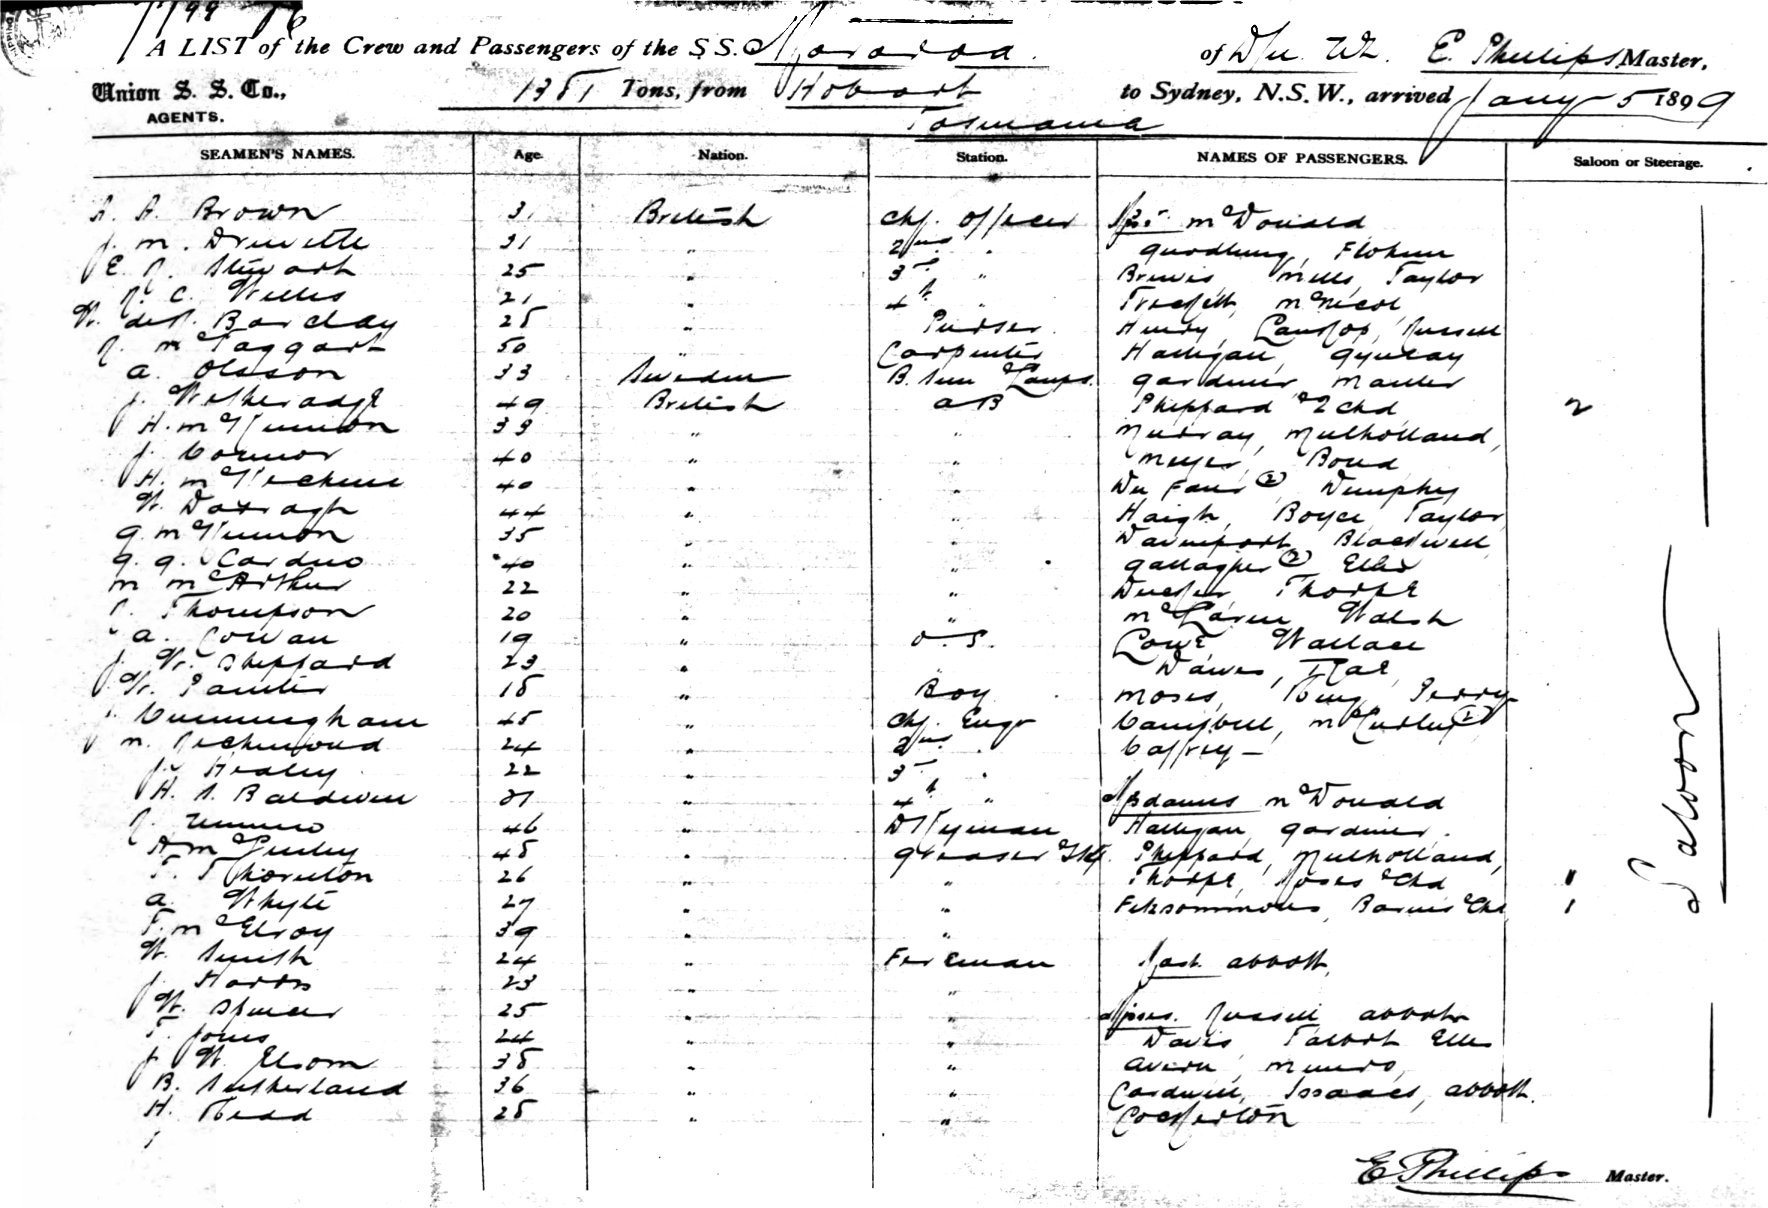 A LIST of the Crew and Passengers of the S.S. Mararoa of E. Phillips, Master,
Union S. S. Co., 1381 Tons, from Hobart to Sydney, N.S.W., arrived Jany 5 1899
AGENTS. Tasmania
SEAMEN'S NAMES. Age. Nation. Station. NAMES OF PASSENGERS. Saloon or Steerage.
A. Brown 31 British Chf. Officer McDonald
J. M. 31 " 2nd "
E. Stewart 25 " 3rd " Mills, Taylor
C. Willis 21 " 4th " McNicol
W. Barclay 28 " Purser Henry, Russell
McTaggart 50 " Carpenter Halligan,
A. Olsson 33 Sweden B. Sun Lamps. Gardiner
J. 49 British AB Sheppard & 2 Chd 2
H. McKinnon 33 " " Murray, Mulholland,
J. Connor 40 " " Bond
H. 40 " " (2) Dumphy
W. Darragh 44 " " Haigh, Boyce, Taylor,
G. McKinnon 35 " " Davenport, Blackwell
G. G. 40 " " Gallagher (2) Ellis
M. McArthur 22 " " Thorpe
Thompson 20 " " McLaren Walsh
A. Cowan 19 " O.S. Lowe Wallace
J. W. Sheppard 23 " " Dawes,
J. W. Painter 18 " Boy Moses, King, Perry
Cunningham 45 " Chf. Engr Campbell, (2)
M. Richmond 24 " 2nd " Caffrey —
J. Healey 22 " 3rd "
H. S. Baldwin 21 " 4th " Mesdames McDonald
Munro 46 " Dkyman Halligan, Gardiner.
48 " Greaser Sheppard, Mulholland,
T. Thornton 26 " " Thorpe, Moses & Chd 1
A. Whyte 27 " " Fitzsimmons, Barnes & Chd 1
T. McElroy 39 " "
W. Smith 24 " Fireman Mast. Abbott,
J. Harris 23 " "
W. Spencer 25 " " Misses. Russell Abbott
T. Jones 24 " " Davis Talbot Ellis
J. W. Elsom 38 " " Munro,
B. Sutherland 36 " " Cardwell, Issaacs, Abbott.
H. Read 28 " " Cockerton
Saloon
E Phillips Master.